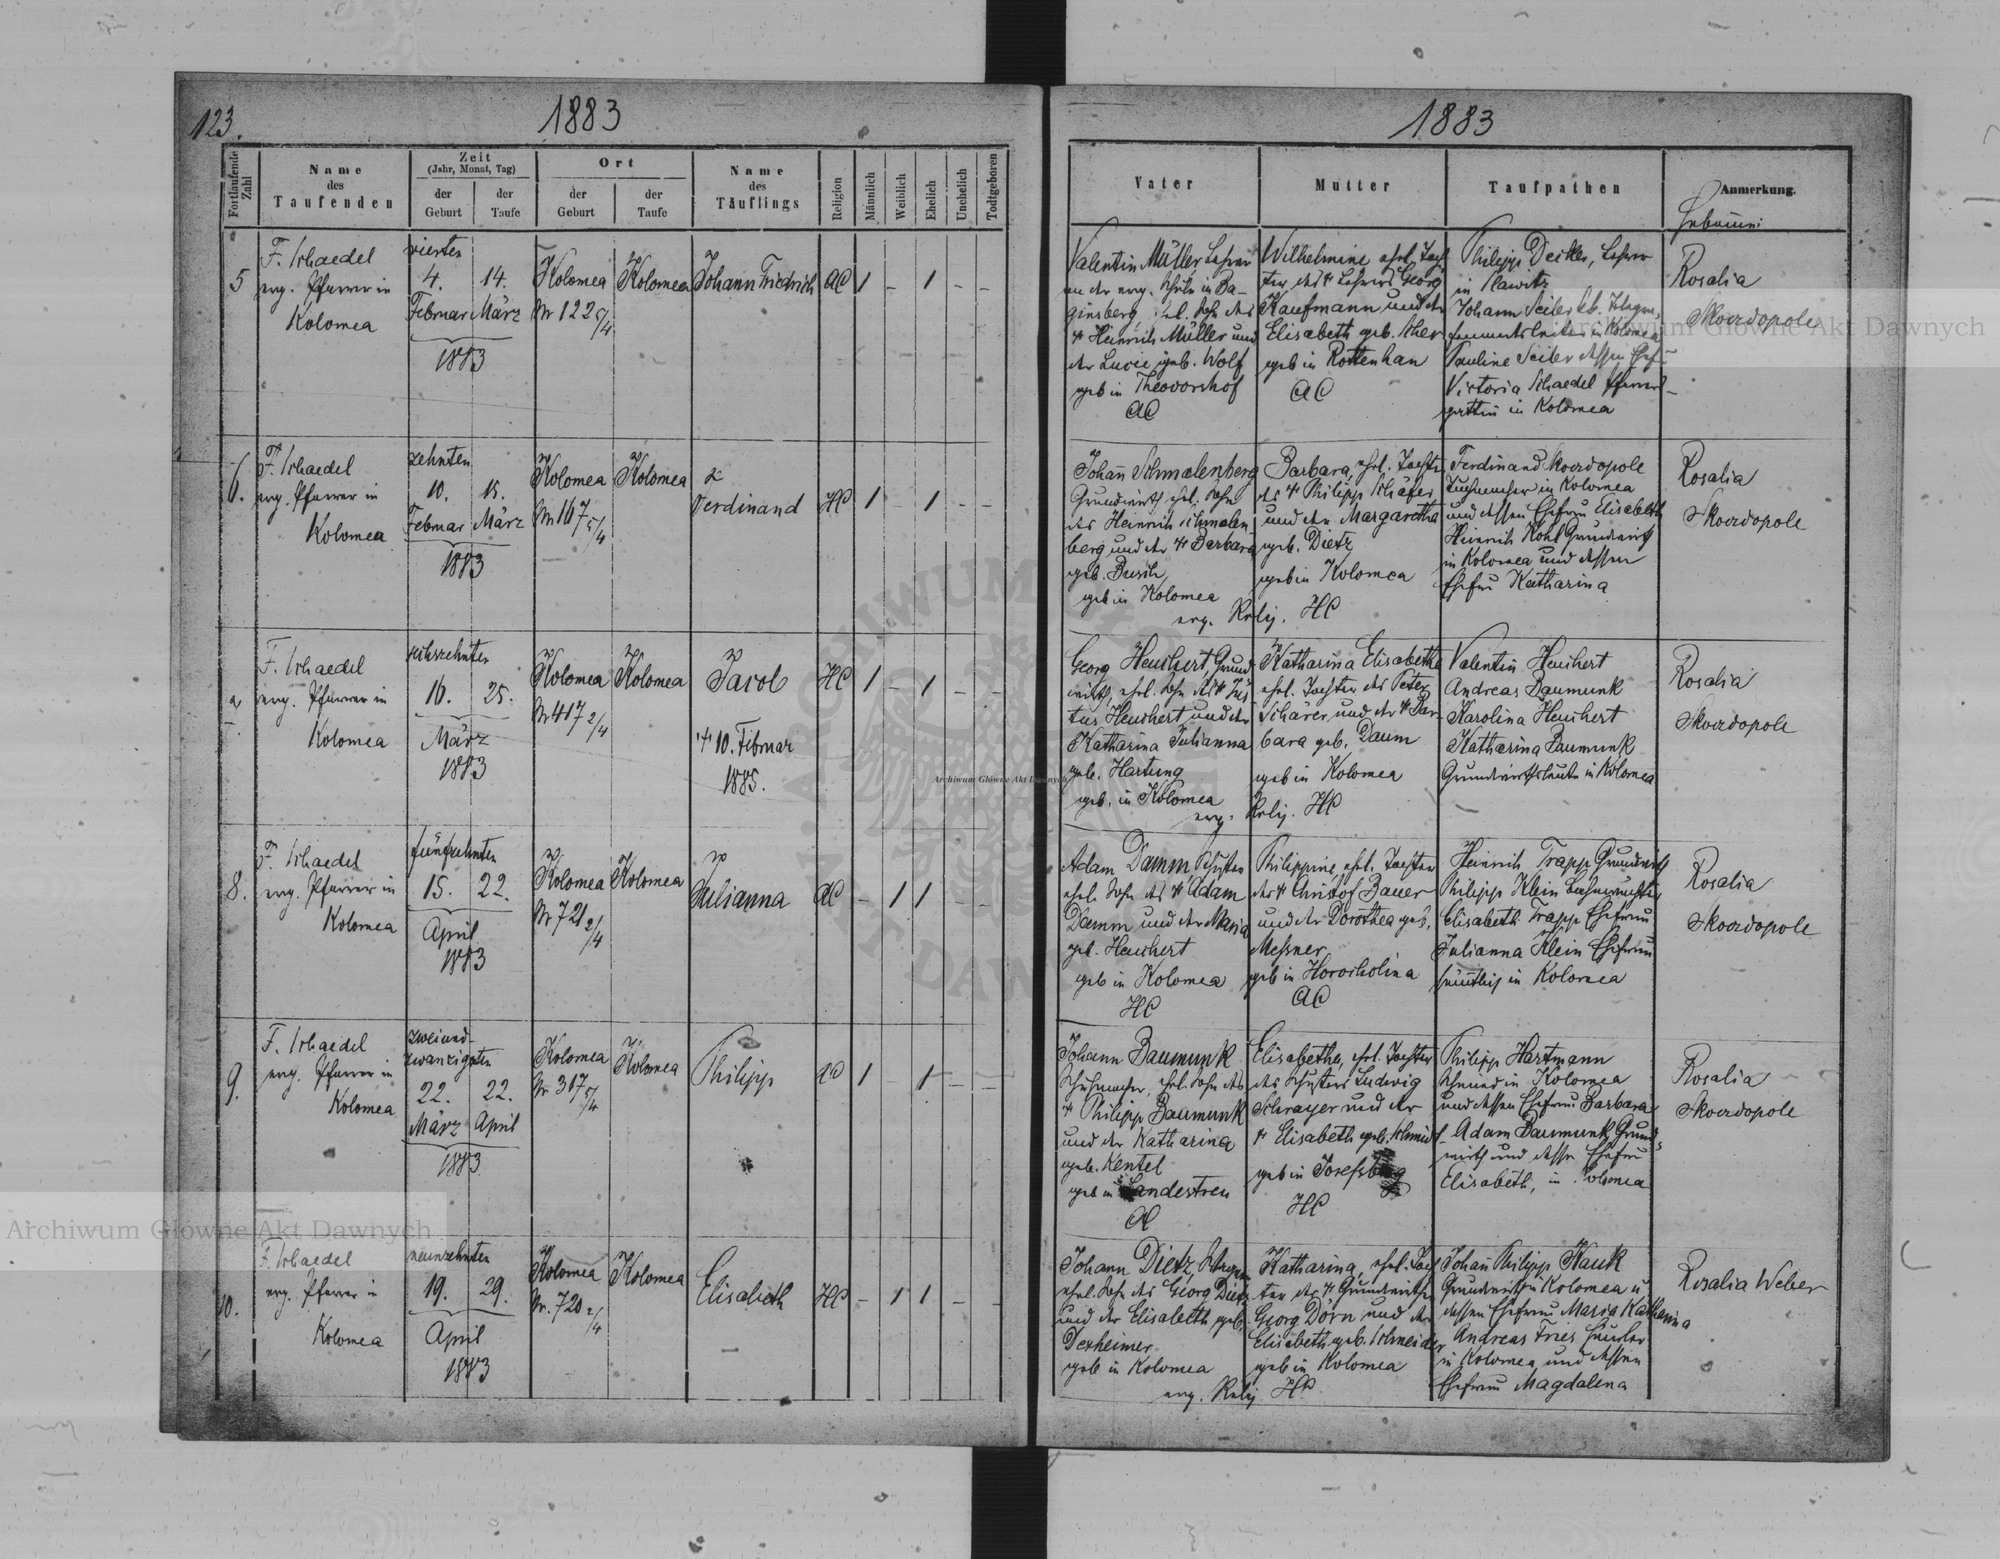 123.
1883
Fortlaufende Zahl
Name
des
Taufenden
Zeit
(Jahr, Monat, Tag)
der Geburt
der Taufe
Ort
der Geburt
der Taufe
Name
des
Täuflings
Religion
Männlich
Weiblich
Ehelich
Unehelich
Todtgeboren
5
F. Schaedel
evg. Pfarrer in
Kolomea
vierten
4. 14.
Februar März
1883
Kolomea
Nr 122 5/4
Kolomea
Johann Friedrich
AC
1 – 1 – –
6.
F. Schaedel
evg. Pfarrer in
Kolomea
zehnten
10. 15.
Februar März
1883
Kolomea
Nr 167 5/4
Kolomea
Ferdinand
HC
1 – 1 – –
F. Schaedel
evg. Pfarrer in
Kolomea
sechszehnten
16. 25.
März
1883
Kolomea
Nr 417 2/4
Kolomea
Jacob
+ 10. Februar
1885.
HC
1 – 1 – –
8.
F. Schaedel
evg. Pfarrer in
Kolomea
fünfzehnten
15. 22.
April
1883
Kolomea
Nr 721 2/4
Kolomea
Julianna
AC
– 1 1 – –
9.
F. Schaedel
evg. Pfarrer in
Kolomea
zweiund-
zwanzigsten
22. 22.
März April
1883
Kolomea
Nr 317 5/4
Kolomea
Philipp
AC
1 – 1 – –
10.
F. Schaedel
evg. Pfarrer in
Kolomea
neunzehnten
19. 29.
April
1883
Kolomea
Nr. 720 2/4
Kolomea
Elisabeth
HC
– 1 1 – –
1883
Vater
Mutter
Taufpathen
Anmerkung.
Hebamme:
Valentin Müller Lehrer
an der evg. Schule in Ba-
ginsberg, ehl. Sohn des
+ Heinrich Müller und
der Lucie geb. Wolf
geb in Theodorshof
AC
Wilhelmine ehel. Toch
ter des + Lehrers Georg
Kaufmann und der
Elisabeth geb. Scher
geb in Rottenhan
AC
Philipp Decker, Lehrer
in Slawitz
Johann Seiler
in Kolomea
Pauline Seiler dessen Ehef-
Victoria Schaedel Pfarrers-
gattin in Kolomea
Rosalia
Skordopole
Johañ Schmalenberg
Grundwirth ehl. Sohn
des Heinrich Schmalen
berg und der + Barbara
geb. Busch
geb in Kolomea
Barbara, ehl. Tochter
des + Philipp Schäfer
und der Margaretha
geb. Dietz
geb in Kolomea
evg. Relig. HC
Ferdinand Skordopole
Tuchmacher in Kolomea
und dessen Ehefrau Elisabeth
Heinrich Kohl Grundwirth
in Kolomea und dessen
Ehefrau Katharina
Rosalia
Skordopole
Georg Heuchert Grund
wirth, ehl. Sohn des + Jus
tus Heuchert und der
Katharina Julianna
geb. Hartung
geb. in Kolomea
Katharina Elisabetha
ehl. Tochter des Peter
Schärer und der + Bar-
bara geb. Daum
geb in Kolomea
evg. Relig. HC
Valentin Heuchert
Andreas Baumunk
Karolina Heuchert
Katharina Baumunk
Grundwirthsleute in Kolomea
Rosalia
Skordopole
Adam Damm Schuster
ehel. Sohn des + Adam
Damm und der Maria
geb. Heuchert
geb in Kolomea
HC
Philippine, ehl. Tochter
des + Christof Bauer
und der Dorothea geb.
Messner
geb in Horocholina
AC
Heinrich Trapp Grundwirth
Philipp Klein
Elisabeth Trapp Ehefrau
Julianna Klein Ehefrau
sämtlich in Kolomea
Rosalia
Skordopole
Johann Baumunk
Schuhmacher, ehl. Sohn des
+ Philipp Baumunk
und der Katharina
geb. Kentel
geb in Landestreu
AC
Elisabetha, ehl. Tochter
des Schusters Ludwig
Schrayer und der
+ Elisabeth geb. Schmidt
geb in Josefsberg
HC
Philipp Hartmann
Schmied in Kolomea
und dessen Ehefrau Barbara
Adam Baumunk Grund-
wirth und dessen Ehefrau
Elisabeth, in Kolomea
Rosalia
Skordopole
Johann Dietz
ehel. Sohn des Georg Dietz
und der Elisabeth geb.
Dexheimer
geb in Kolomea
Katharina, ehl. Toch
ter des + Grundwirths
Georg Dörn und der
Elisabeth geb. Schneider
geb in Kolomea
evg. Relig HC
Johañ Philipp Hauk
Grundwirth in Kolomea u
dessen Ehefrau Maria Katharina
Andreas Fries Häusler
in Kolomea und dessen
Ehefrau Magdalena
Rosalia Weber
Archiwum Główne Akt Dawnych
Archiwum Główne Akt Dawnych
Archiwum Główne Akt Dawnych